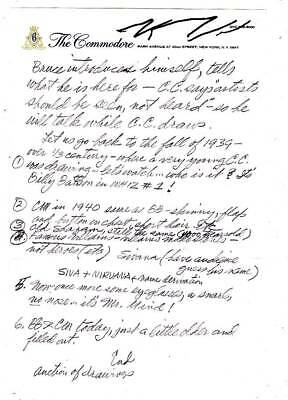 The Commodore
PARK AVENUE AT 42nd STREET, NEW YORK, N.Y. 10017
Bruce introduces himself, tells
what he is here for – C.C. says "artists
should be seen, not heard" – so he
will talk while C.C. draws.
Let us go back to the fall of 1939 –
over ½ century – when a very young C.C.
was drawing – let's watch... who is it?
Billy Batson in WHIZ #1!
② CM in 1940 same as BB – skinny, flap
and button on chest, short hair.
③ Old Shazam, still the same
famous villains –
not derelicts) Sivana (have audience
guess his name)
SIVA + NIRVANA = name derivation
5. Now once more some eyeglasses, a snarl,
no nose – it's Mr. Mind!
6. BB & CM today, just a little older and
filled out.
End
auction of drawings